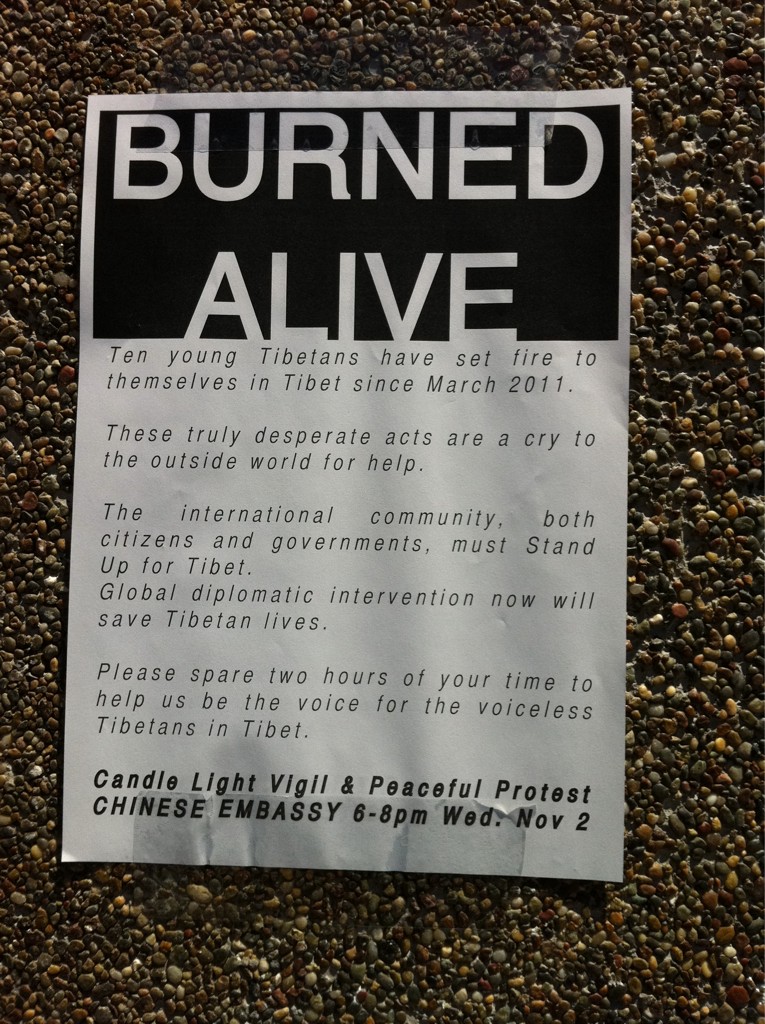 BURNED
ALIVE
Ten young Tibetans have set fire to
themselves in Tibet since March 2011.
These truly desperate acts are a cry to
the outside world for help.
The international community, both
citizens and governments, must Stand
Up for Tibet.
Global diplomatic intervention now will
save Tibetan lives.
Please spare two hours of your time to
help us be the voice for the voiceless
Tibetans in Tibet.
Candle Light Vigil & Peaceful Protest
CHINESE EMBASSY 6-8pm Wed. Nov 2